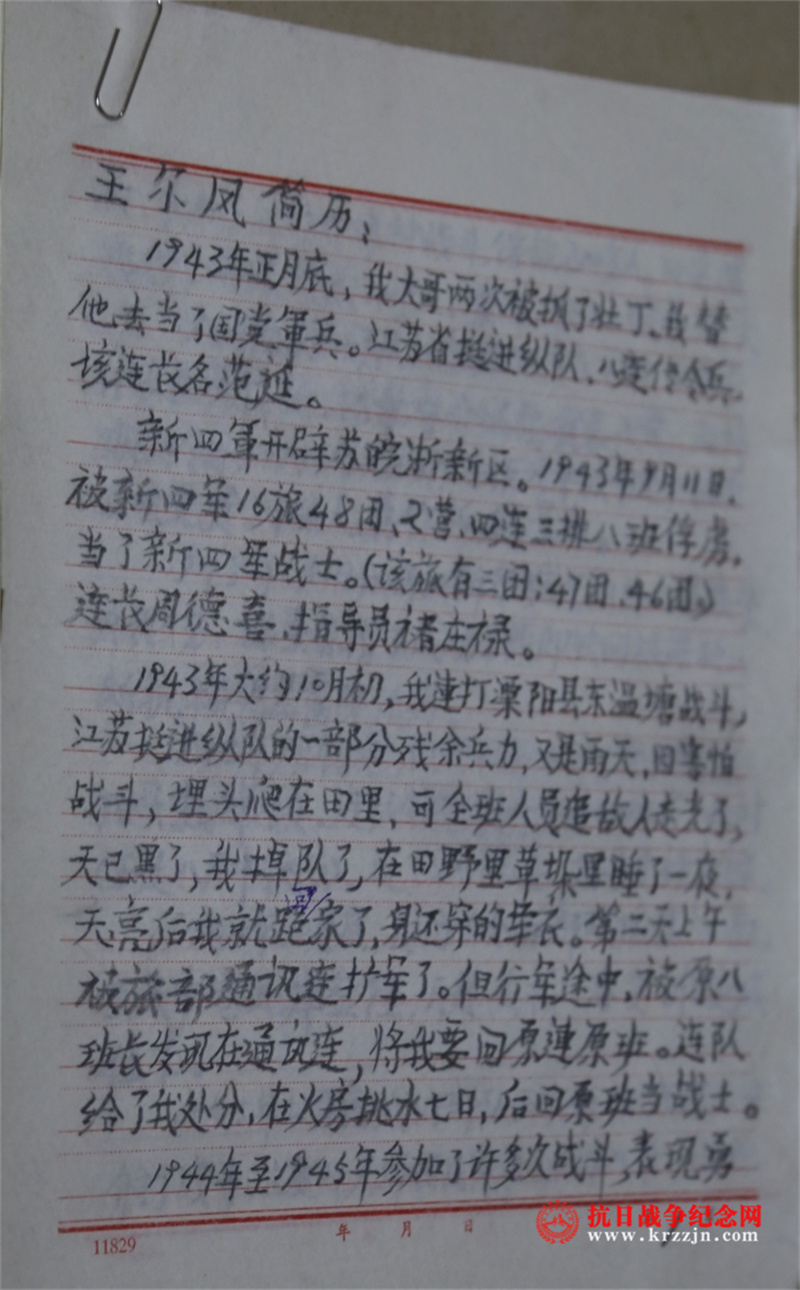 王尔风简历：
1943年正月底，我大哥两次被抓了壮丁、我替
他去当了国党軍兵。江苏省挺进纵队、八连传令兵，
该连长名范延。
新四軍开辟苏皖浙新区。1943年9月11日，
被新四军16旅48团、2营、四连三排八班俘虏，
当了新四军战士。（该旅有三团：47团、46团。）
连长周德喜、指导员褚庄禄。
1943年大约10月初，我連打溧阳县东温塘战斗，
江苏挺进纵队的一部分残余兵力，又是雨天，因害怕
战斗，埋头爬在田里、可全班人员追敌人走光了，
天已黑了，我掉队了，在田野里草垛里睡了一夜，
天亮后我就跑回家了，身还穿的军衣。第二天上午
被旅部通讯连扩军了。但行军途中，被原八
班长发现在通讯连，将我要回原連原班。连队
给了我处分，在火房挑水七日，后回原班当战士。
1944年至1945年参加了许多次战斗，表现勇
年 月 日
11829
抗日战争纪念网
www.krzzjn.com